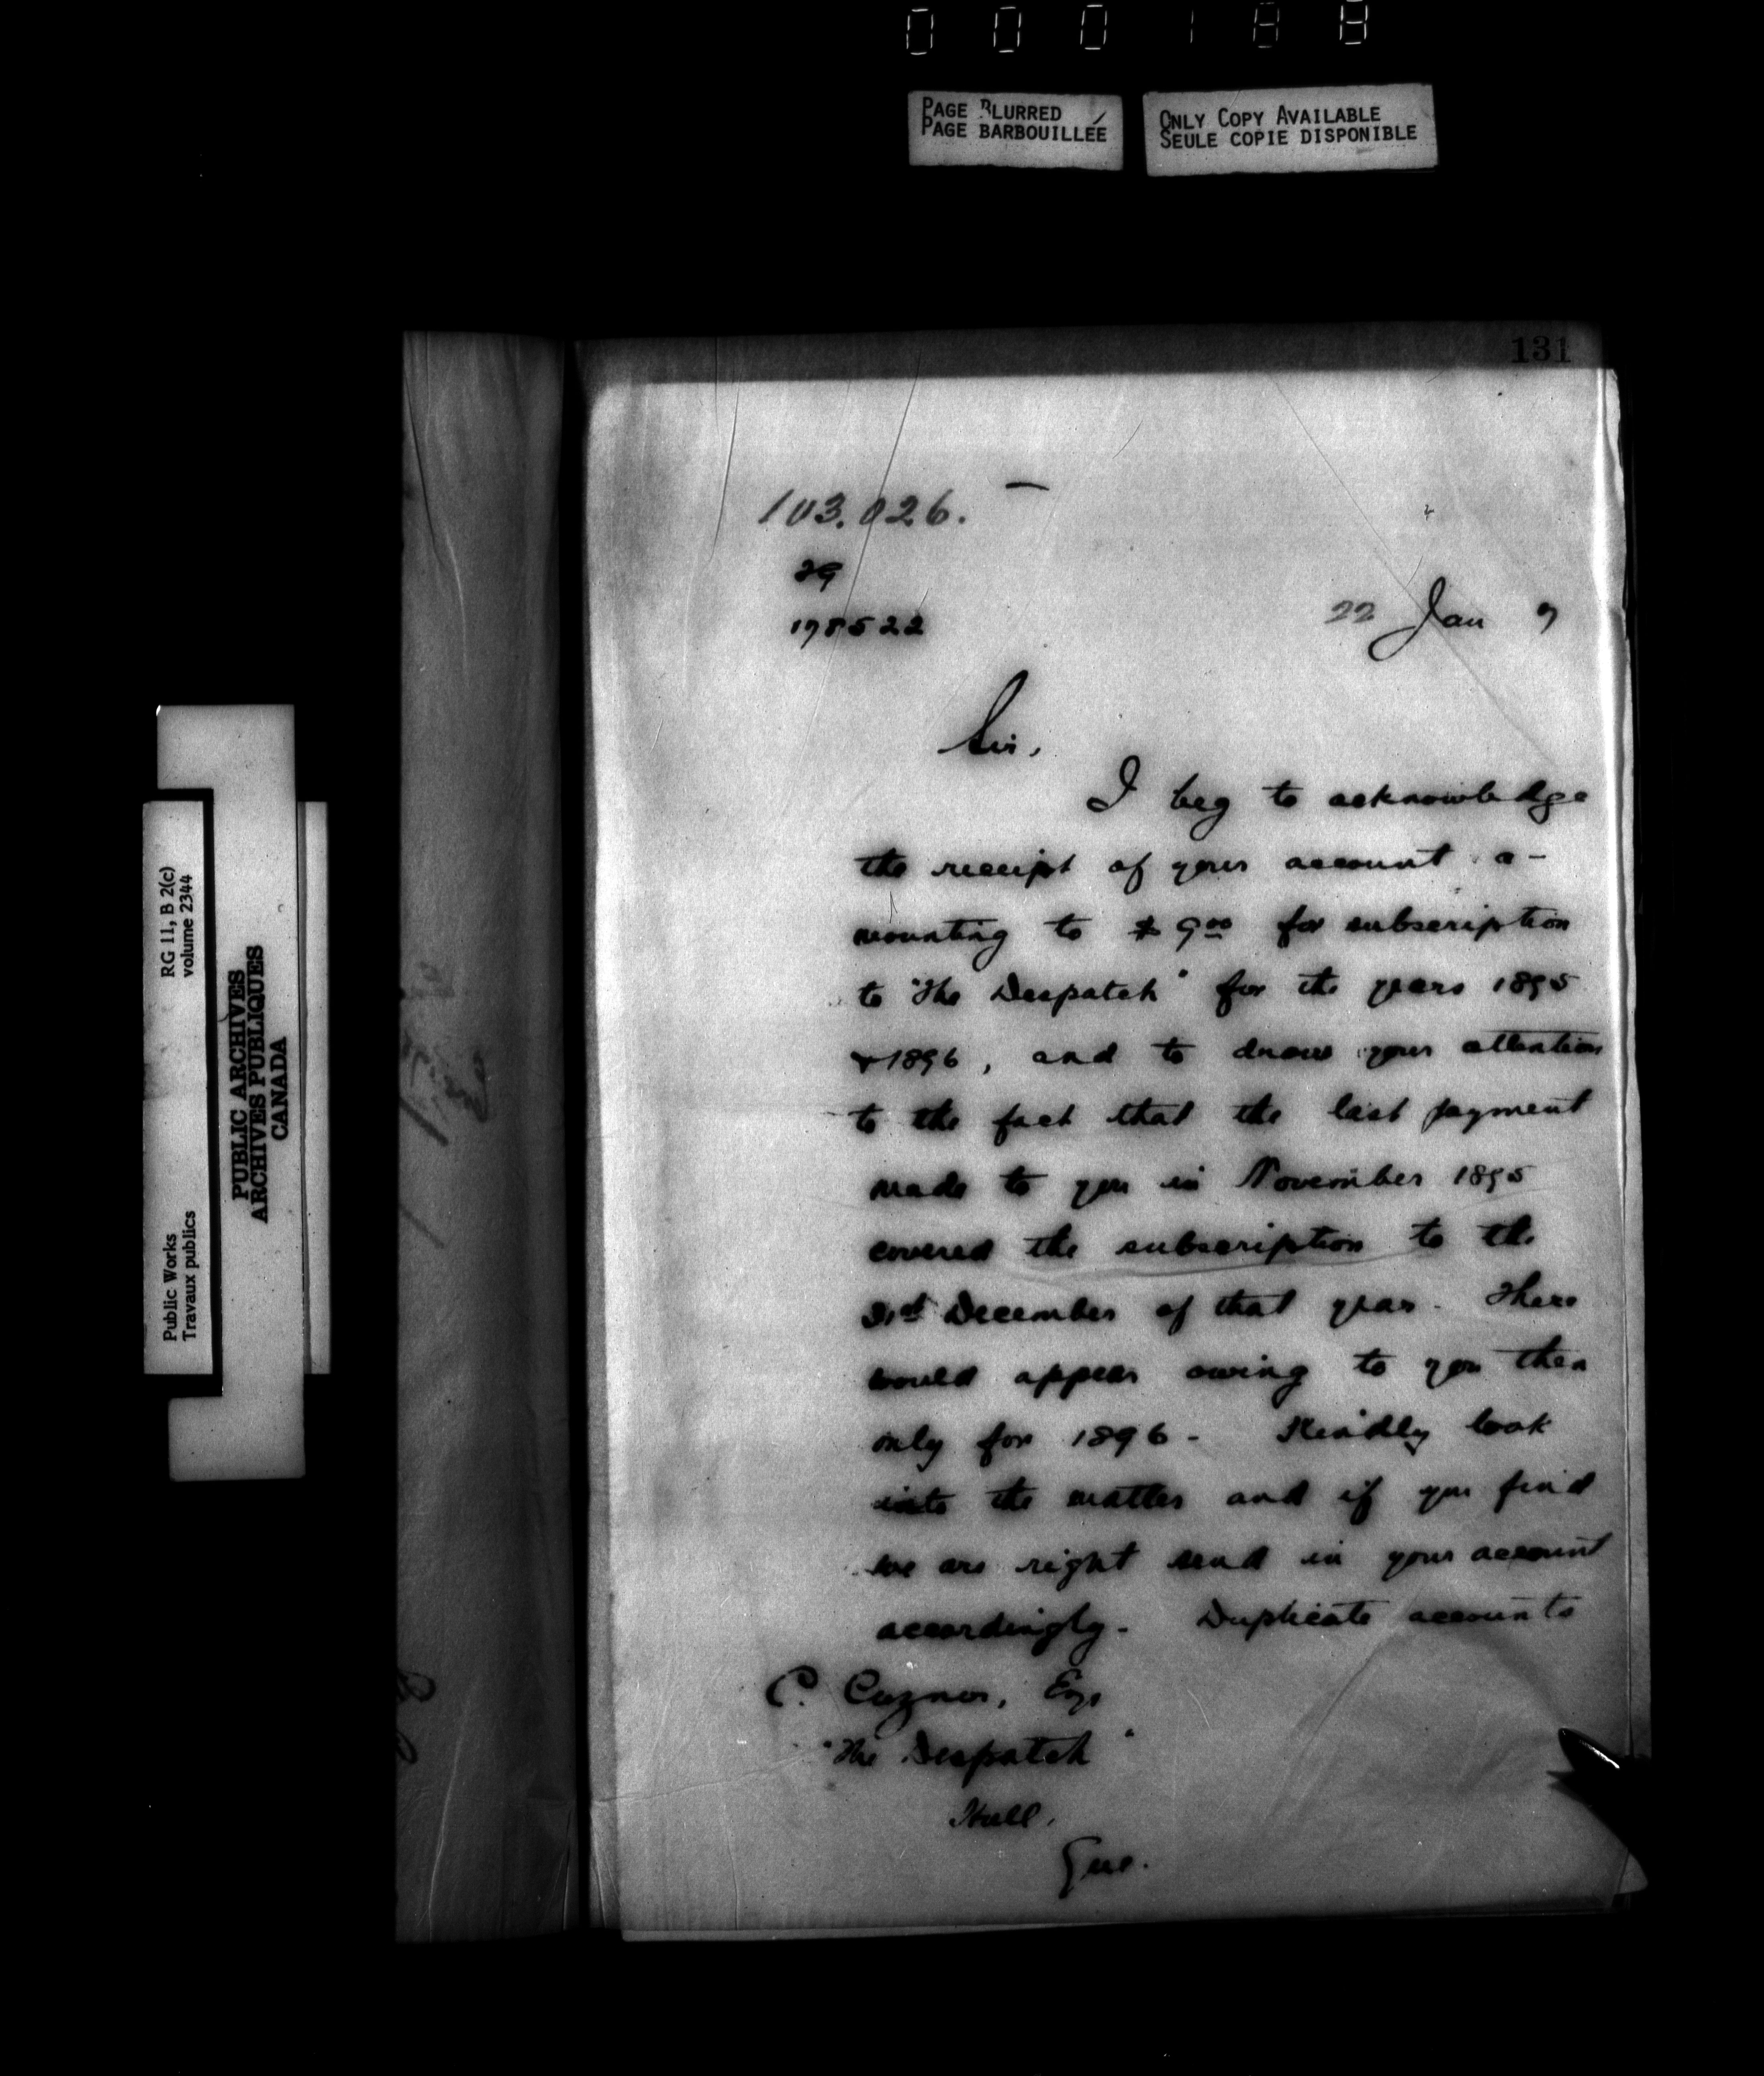 000188
PAGE BLURRED
PAGE BARBOUILLÉE
ONLY COPY AVAILABLE
SEULE COPIE DISPONIBLE
RG 11, B 2(c)
volume 2344
PUBLIC ARCHIVES
ARCHIVES PUBLIQUES
CANADA
Public Works
Travaux publics
131
103.026.
178522
22 Jan 7
Sir,
I beg to acknowledge
the receipt of your account a-
mounting to $9.00 for subscription
to "The Despatch" for the years 1895
& 1896, and to draw your attention
to the fact that the last payment
made to you in November 1895
covered the subscription to the
31st December of that year. There
would appear owing to you then
only for 1896 - Kindly look
into the matter and if you find
we are right send in your account
accordingly - Duplicate accounts
C. Esq
"The Despatch"
Hull,
Que.